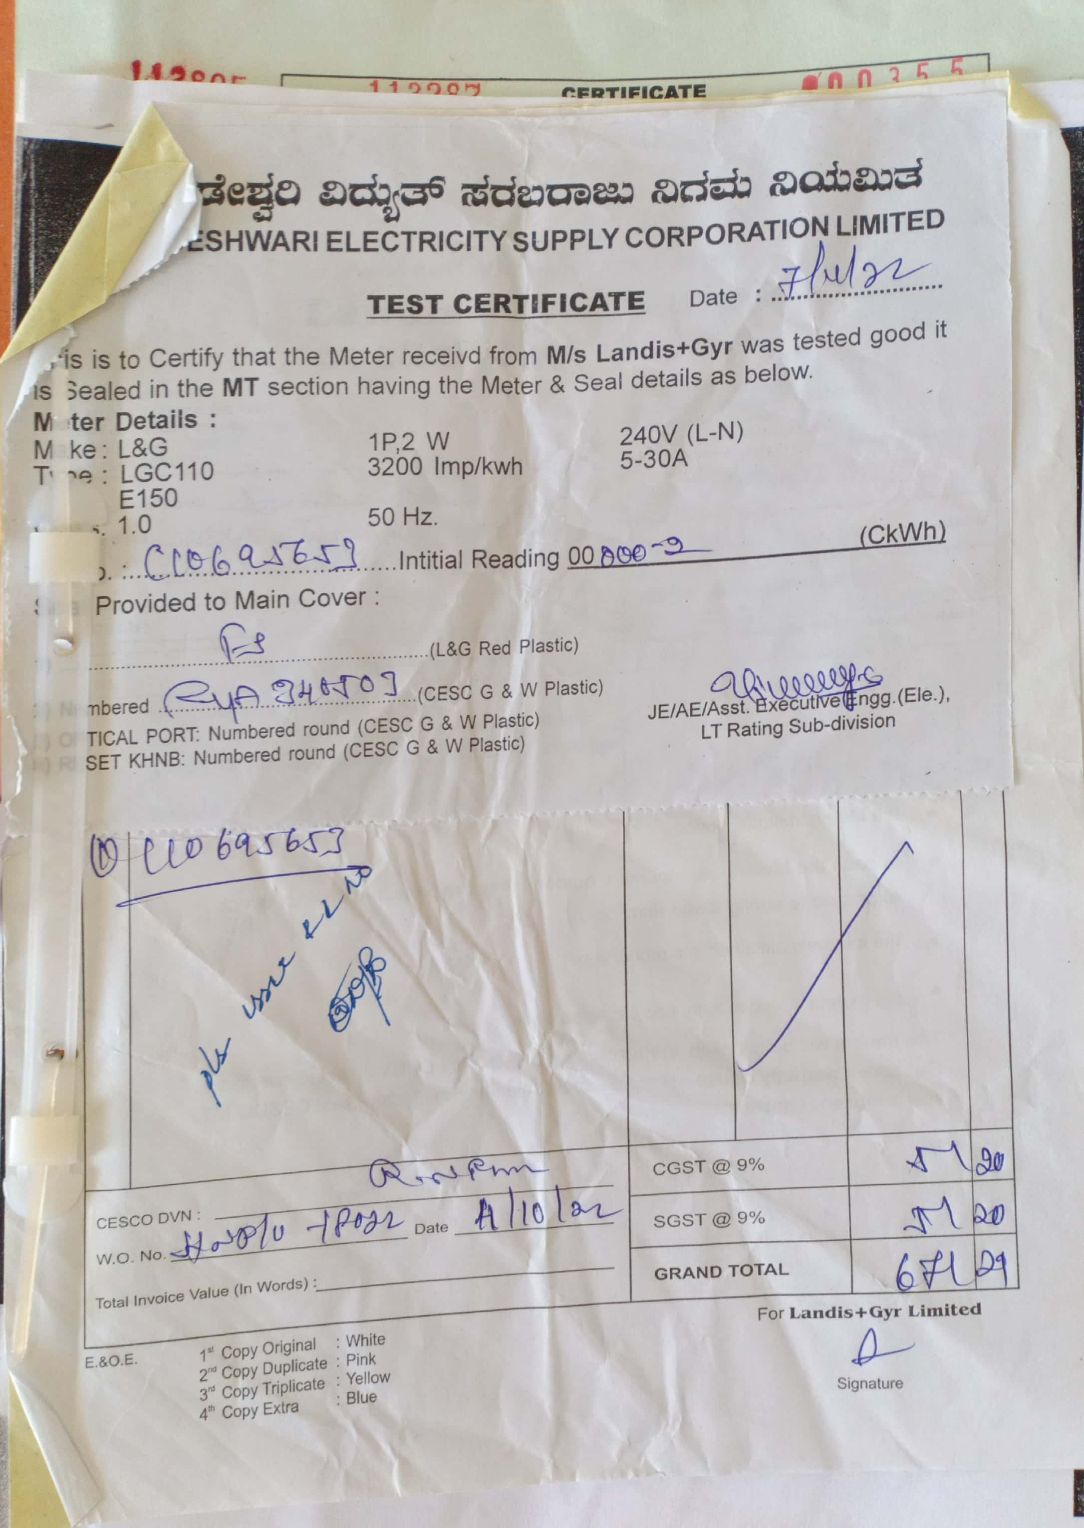 CERTIFICATE
ಡೇಶ್ವರಿ ವಿದ್ಯುತ್ ಸರಬರಾಜು ನಿಗಮ ನಿಯಮಿತ
ESHWARI ELECTRICITY SUPPLY CORPORATION LIMITED
TEST CERTIFICATE Date :
is is to Certify that the Meter receivd from M/s Landis+Gyr was tested good it
is Sealed in the MT section having the Meter & Seal details as below.
M ter Details :
M ke : L&G 1P,2 W 240V (L-N)
: LGC110 3200 Imp/kwh 5-30A
E150
1.0 50 Hz.
C110695653 Intitial Reading 00 000-2 (CkWh)
Provided to Main Cover :
(L&G Red Plastic)
mbered (CESC G & W Plastic)
TICAL PORT: Numbered round (CESC G & W Plastic)
SET KHNB: Numbered round (CESC G & W Plastic)
JE/AE/Asst. Executive Engg.(Ele.),
LT Rating Sub-division
C110695653
pls issue
CGST @ 9% 51 20
CESCO DVN :
SGST @ 9% 51 20
W.O. No. Date /10/22
GRAND TOTAL 671 29
Total Invoice Value (In Words) :
For Landis+Gyr Limited
E.&O.E.
1st Copy Original : White
2nd Copy Duplicate : Pink
3rd Copy Triplicate : Yellow
4th Copy Extra : Blue
Signature